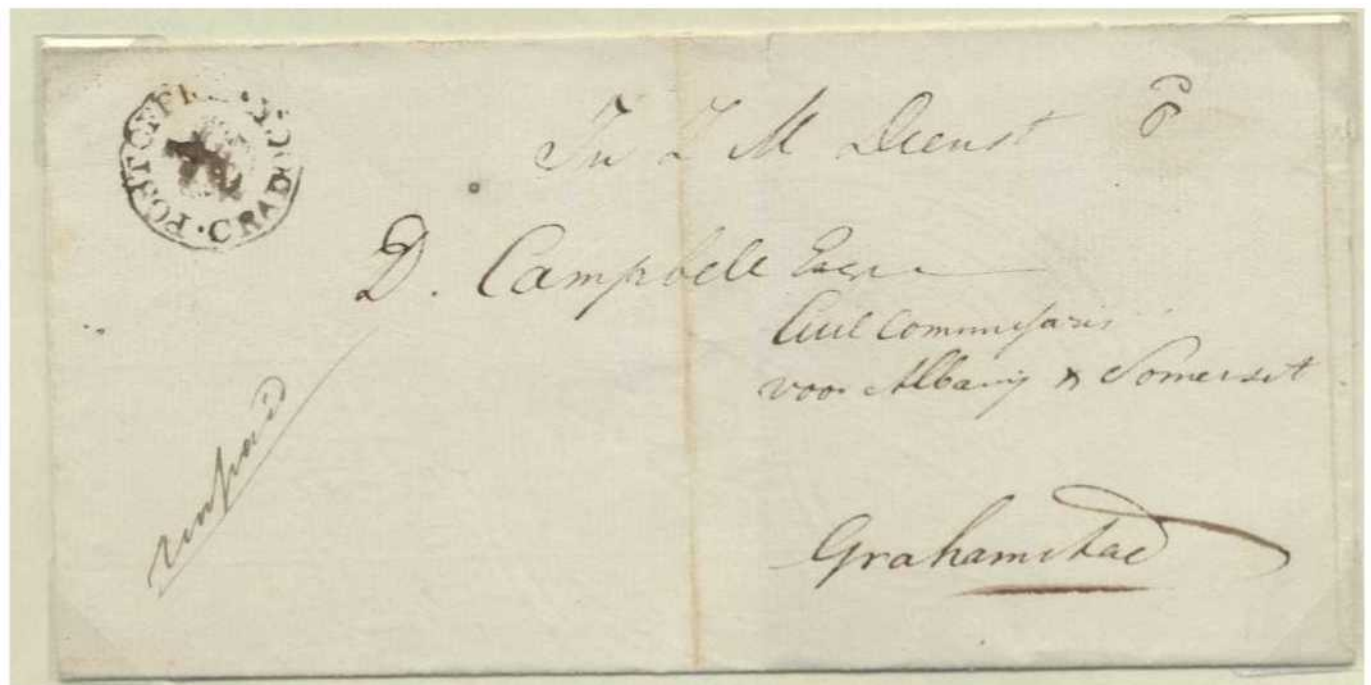 POST OFFI
CRADOC
In Z M Dienst
D. Campbell Esqre
Civil Commissaris
voor Albany & Somerset
unpaid
Grahamstad